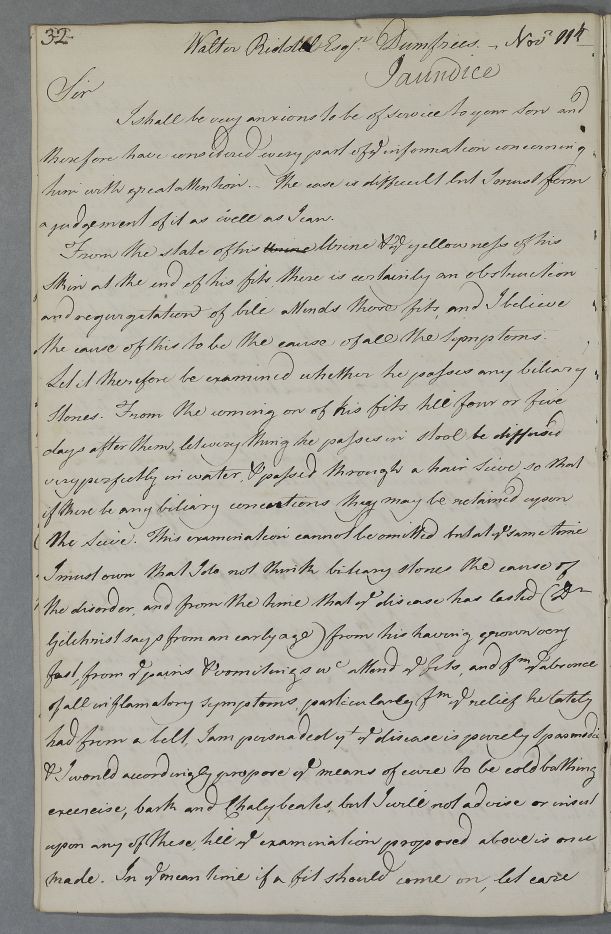 32
Walter Riddell Esqr. Dumfries. - Novr. 11th
Jaundice
Sir
I shall be very anxious to be of service to your son and
therefore have considered every part of ye information concerning
him with great attention. - The case is difficult but I must form
a judgement of it as well as I can.
From the state of his Urine Urine & ye yellowness of his
skin at the end of his fits there is certainly an obstruction
and regurgitation of bile attends those fits, and I believe
the cause of this to be the cause of all the symptoms.
Let it therefore be examined whether he passes any biliary
stones. From the coming on of his fits till four or five
days after them, let every thing he passes in stool be diffused
very perfectly in water, & passed through a hair sieve, so that
if there be any biliary concretions they may be retained upon
the sieve. This examination cannot be omitted but at ye same time
I must own that I do not think biliary stones the cause of
the disorder, and from the time that ye disease has lasted (Dr
Gilchrist says from an early age) from his having grown very
fast, from ye pains & vomitings wc attend ye fits, and fm ye absence
of all inflamatory symptoms, particularly fm ye relief he lately
had from a belt, I am persuaded yt ye disease is purely spasmodic
& I would accordingly propose ye means of cure to be cold bathing
exercise, bark and Chalybeates, but I will not advise or insist
upon any of these, till ye examination proposed above is once
made. In ye mean time if a fit should come on, let care